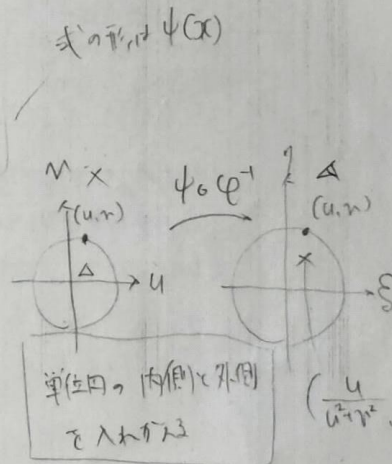 式の形は ψ(x)
ψ∘φ⁻¹
× (u,v)
Δ
u
(u,v)
×
ξ
単位円の内側と外側
を入れかえる
(u/(u²+v²),